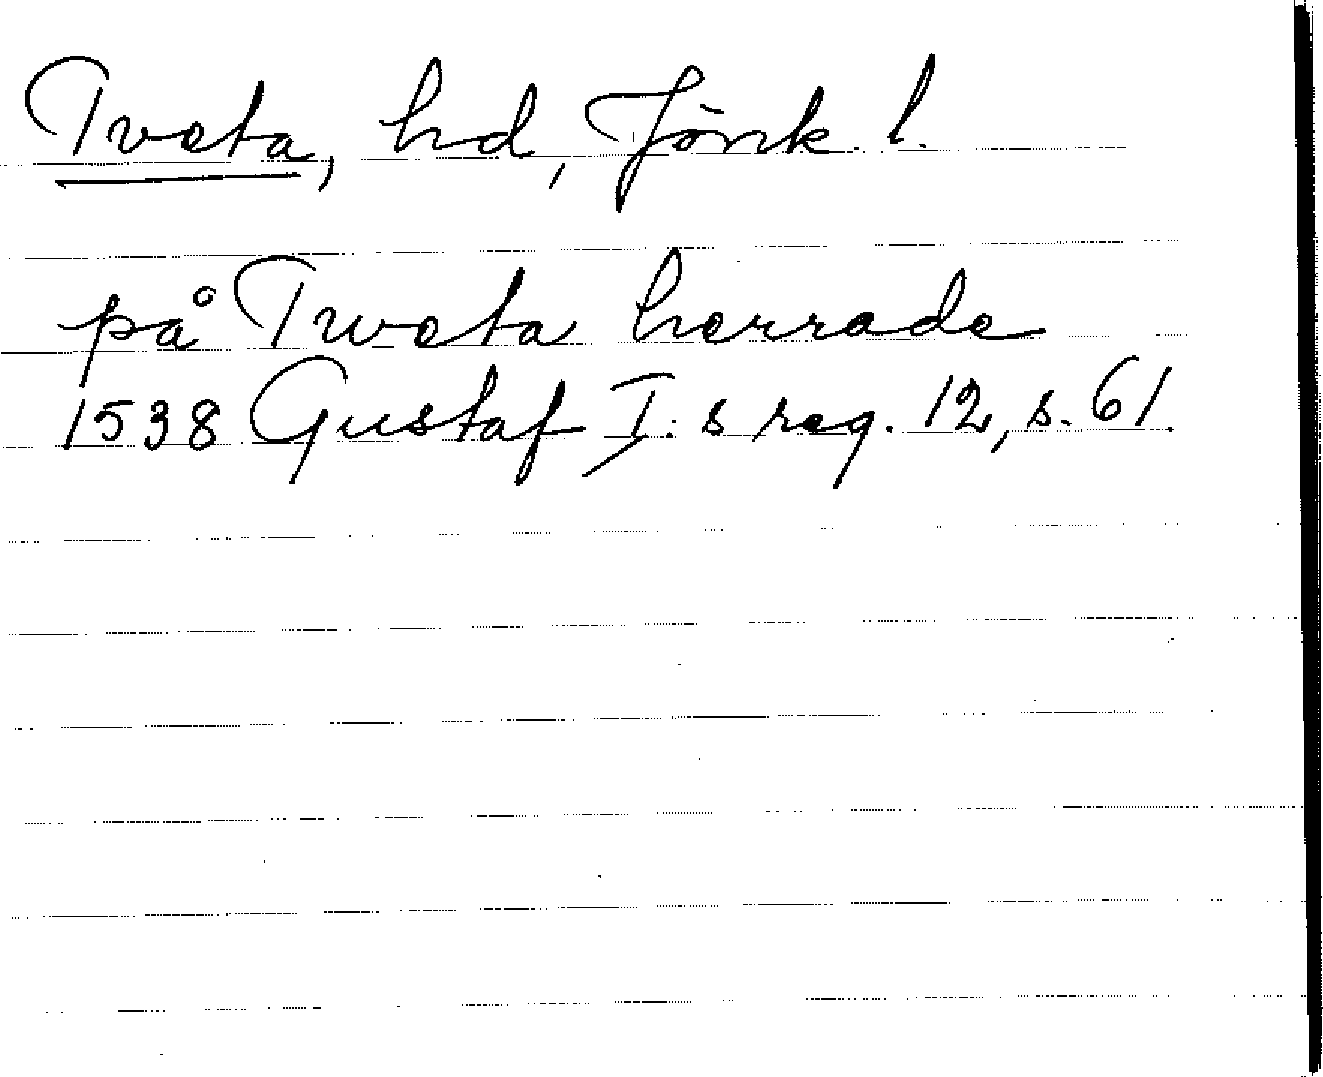 Tveta, hd, Jönk. l.
på Tweta herrade
1538 Gustaf I:s reg. 12, s. 61.